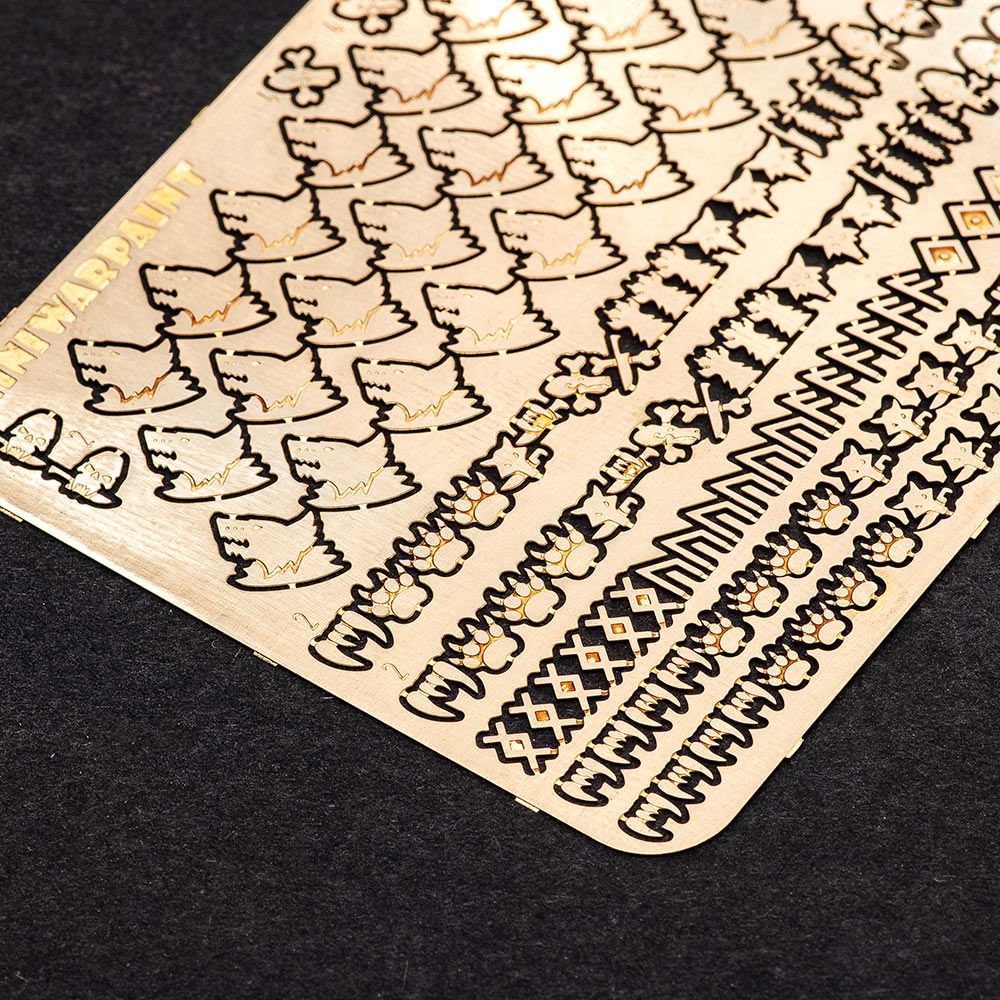 MINIWARPAINT
2
2
2